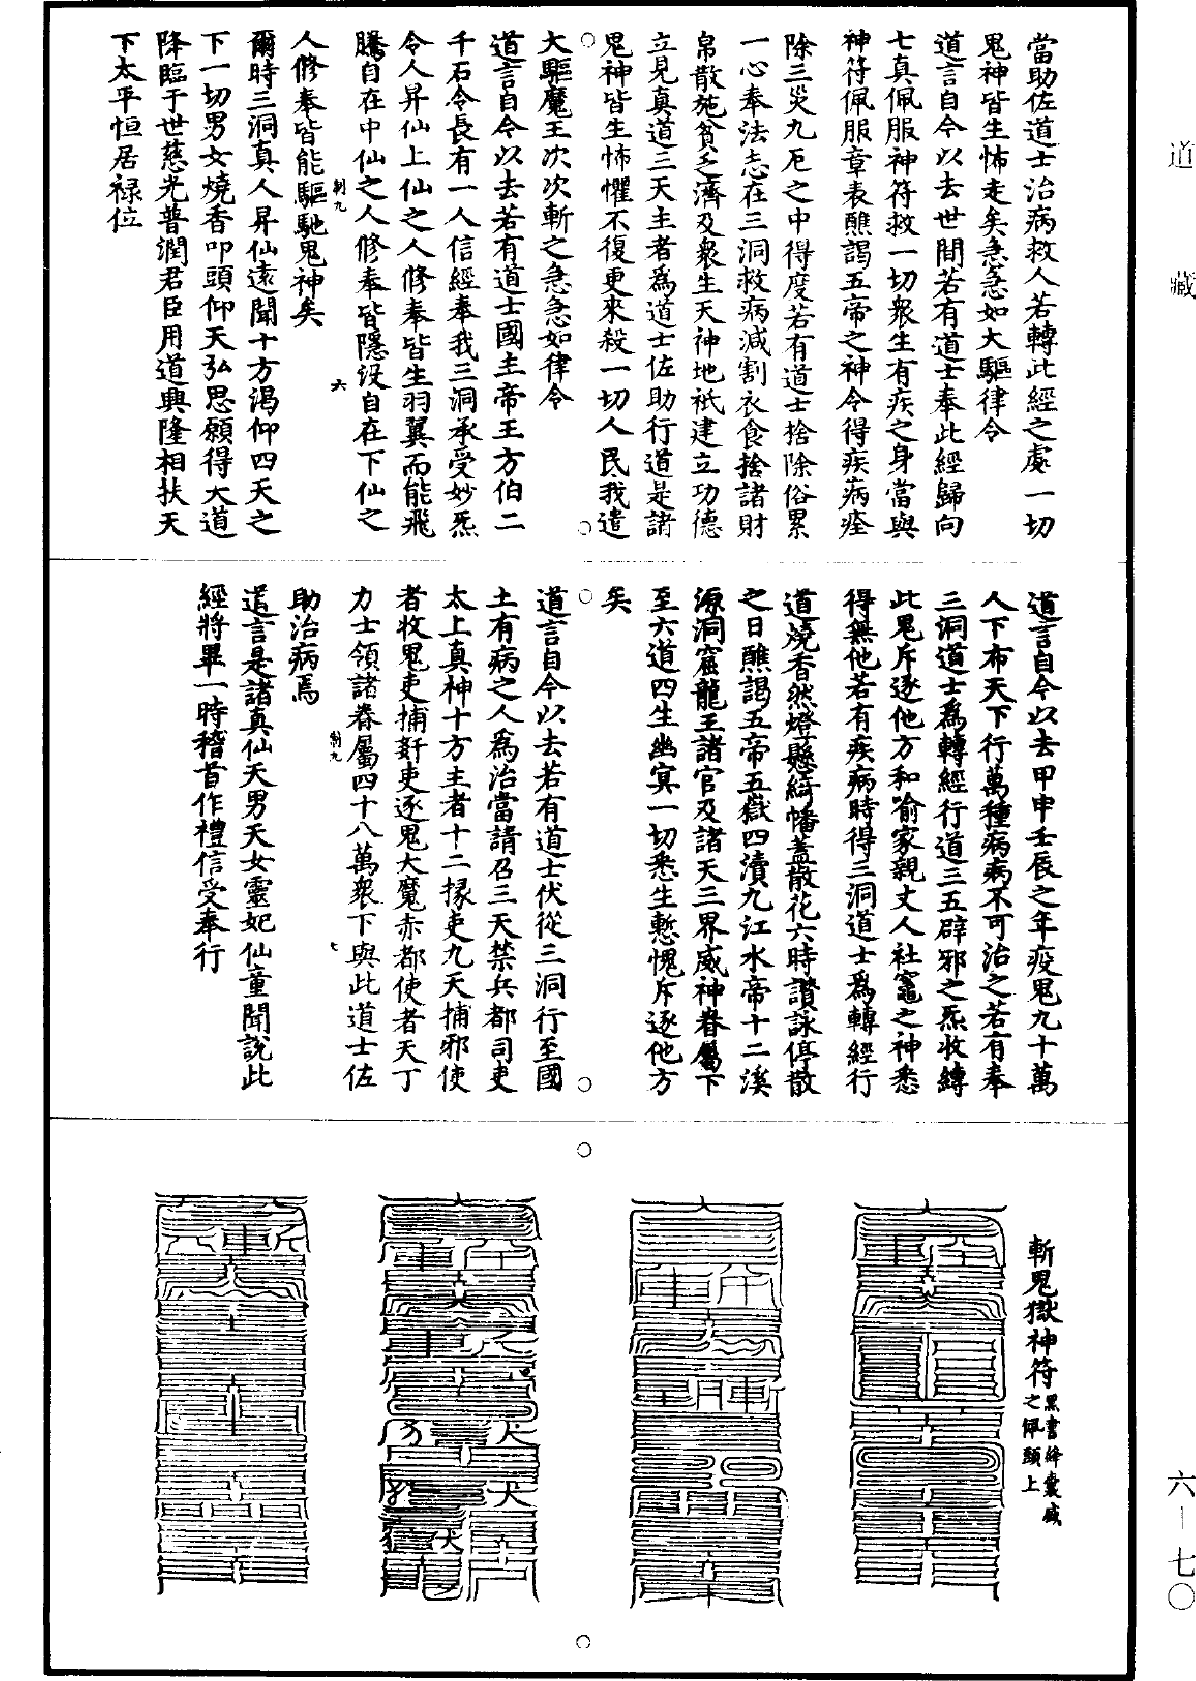 當助佐道士治病救人若轉此經之處一切
鬼神皆生怖走矣急急如大驅律令
道言自今以去世間若有道士奉此經歸向
七真佩服神符救一切衆生有疾之身當與
神符佩服章表醮謁五帝之神令得疾病痊
除三災九厄之中得度若有道士捨除俗累
一心奉法志在三洞救病減割衣食捨諸財
帛散施貧乏濟及衆生天神地祇建立功德
立見真道三天主者爲道士佐助行道是諸
鬼神皆生怖懼不復更來殺一切人民我遣
大驅魔王次次斬之急急如律令
道言自今以去若有道士國主帝王方伯二
千石令長有一人信經奉我三洞承受妙炁
令人昇仙上仙之人修奉皆生羽翼而能飛
騰自在中仙之人修奉皆隱没自在下仙之
制九
六
人修奉皆能驅馳鬼神矣
爾時三洞真人昇仙遠聞十方渴仰四天之
下一切男女燒香叩頭仰天弘思願得大道
降臨于世慈光普潤君臣用道興隆相扶天
下太平恒居禄位
道言自今以去甲申壬辰之年疫鬼九十萬
人下布天下行萬種病病不可治之若有奉
三洞道士爲轉經行道三五辟邪之炁收縛
此鬼斥逐他方和喻家親丈人社竈之神悉
得無他若有疾病時得三洞道士爲轉經行
道燒香然燈懸繒幡蓋散花六時讚詠停散
之日醮謁五帝五嶽四瀆九江水帝十二溪
源洞窟龍王諸官及諸天三界威神眷屬下
至六道四生幽冥一切悉生慙愧斥逐他方
矣
道言自今以去若有道士伏從三洞行至國
土有病之人爲治當請召三天禁兵都司吏
太上真神十方主者十二掾吏九天捕邪使
者收鬼吏捕姧吏逐鬼大魔赤都使者天丁
力士領諸眷屬四十八萬衆下與此道士佐
制九
七
助治病焉
道言是諸真仙天男天女靈妃仙童聞說此
經將畢一時稽首作禮信受奉行
斬鬼獄神符
黑書絳囊盛
之佩頭上
道藏
六—七〇